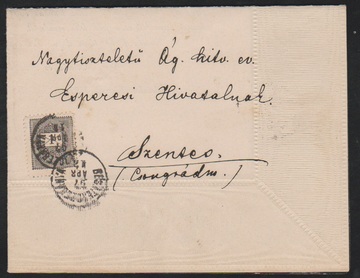 Nagytiszteletű Ág. hitv. ev.
Esperesi Hivatalnak.
Szentes.
(Csongrádm.)
97
APR